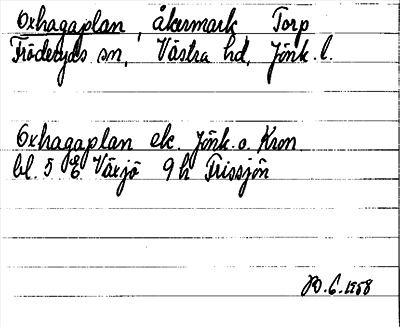 Oxhagaplan, åkermark Torp
Fröderyds sn, Västra hd, Jönk. l.
Oxhagaplan ek. Jönk. o. Kron
bl. 5 E Växjö 9 h Frissjön
1958